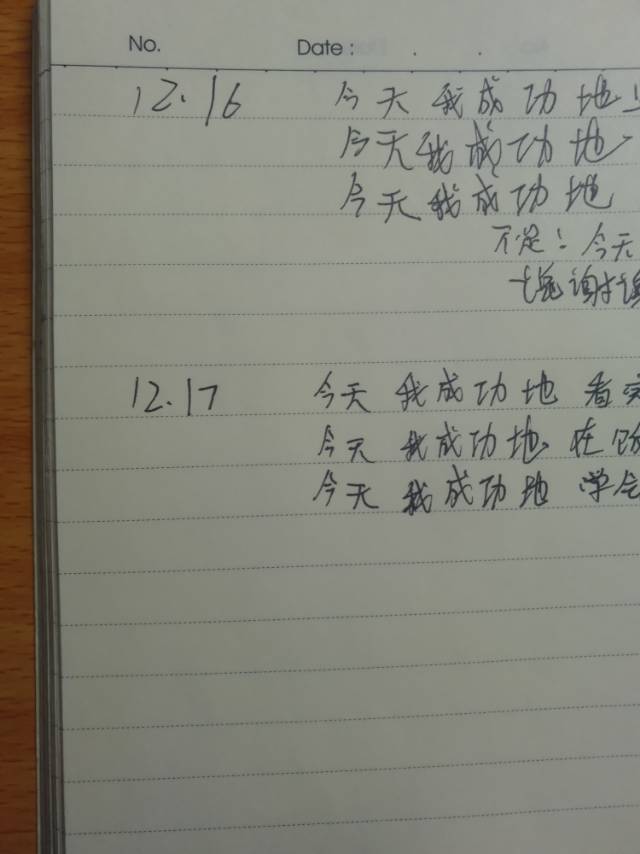 No. Date : . .
12.16 今天我成功地
今天我成功地
今天我成功地
不足！今天
谢
12.17 今天我成功地看
今天我成功地在
今天我成功地学会